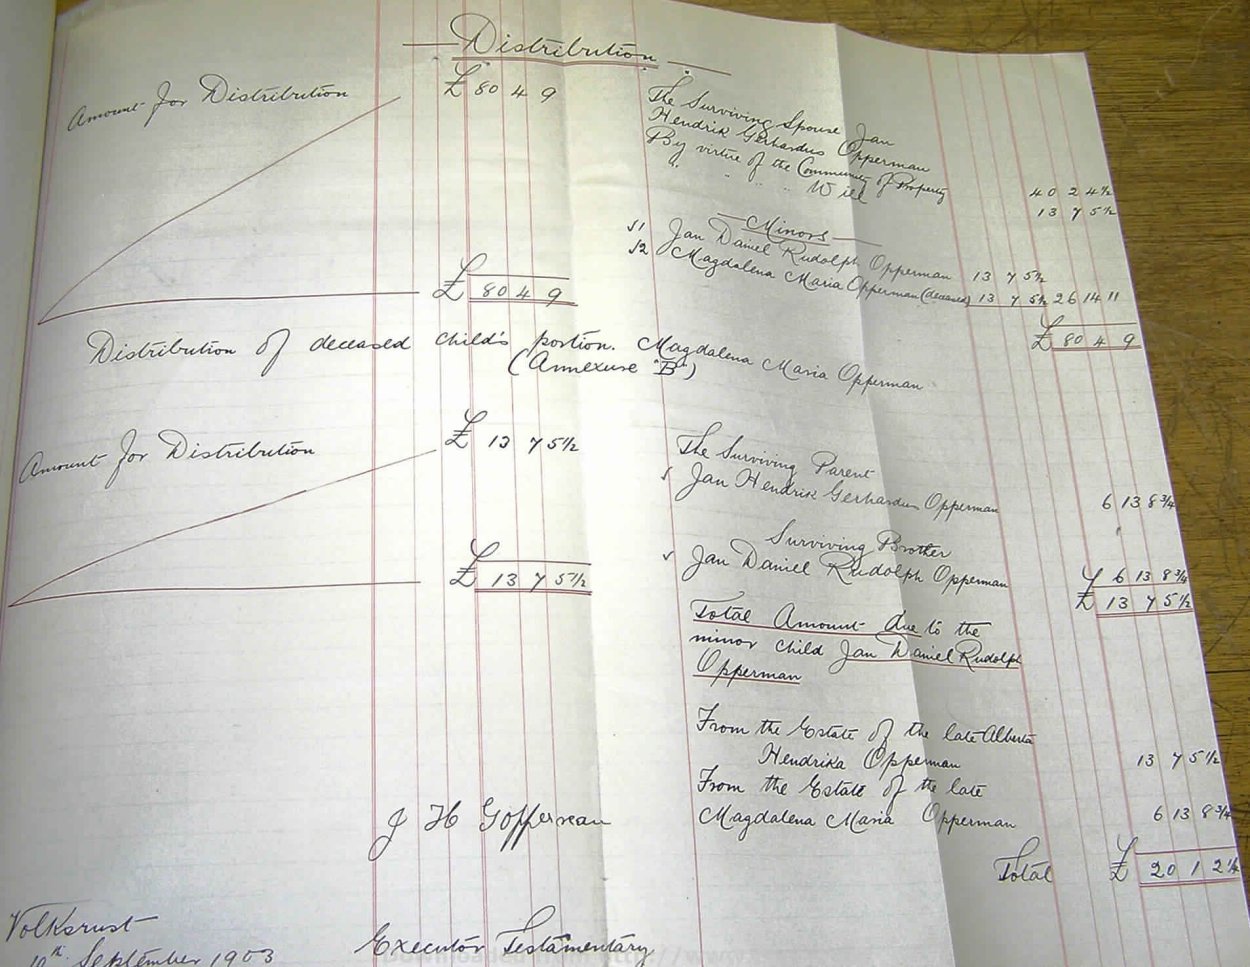 Distribution
Amount for Distribution £ 80 4 9
The Surviving Spouse Jan
Hendrik Gerhardus Opperman
By virtue of the Community of Property 40 2 4½
" " " " Will 13 7 5½
Minors
√1 Jan Daniel Rudolph Opperman 13 7 5½
√2 Magdalena Maria Opperman (deceased) 13 7 5½ 26 14 11
£ 80 4 9 £ 80 4 9
Distribution of deceased child's portion. Magdalena Maria Opperman
(Annexure "B")
Amount for Distribution £ 13 7 5½
The Surviving Parent
√ Jan Hendrik Gerhardus Opperman 6 13 8¾
Surviving Brother
√ Jan Daniel Rudolph Opperman £ 6 13 8¾
£ 13 7 5½ £ 13 7 5½
Total Amount due to the
minor child Jan Daniel Rudolph
Opperman
From the Estate of the late Alberta
Hendrika Opperman 13 7 5½
From the Estate of the late
Magdalena Maria Opperman 6 13 8¾
Total £ 20 1 2¼
J H G Opperman
Volksrust
th September 1903
Executor Testamentary